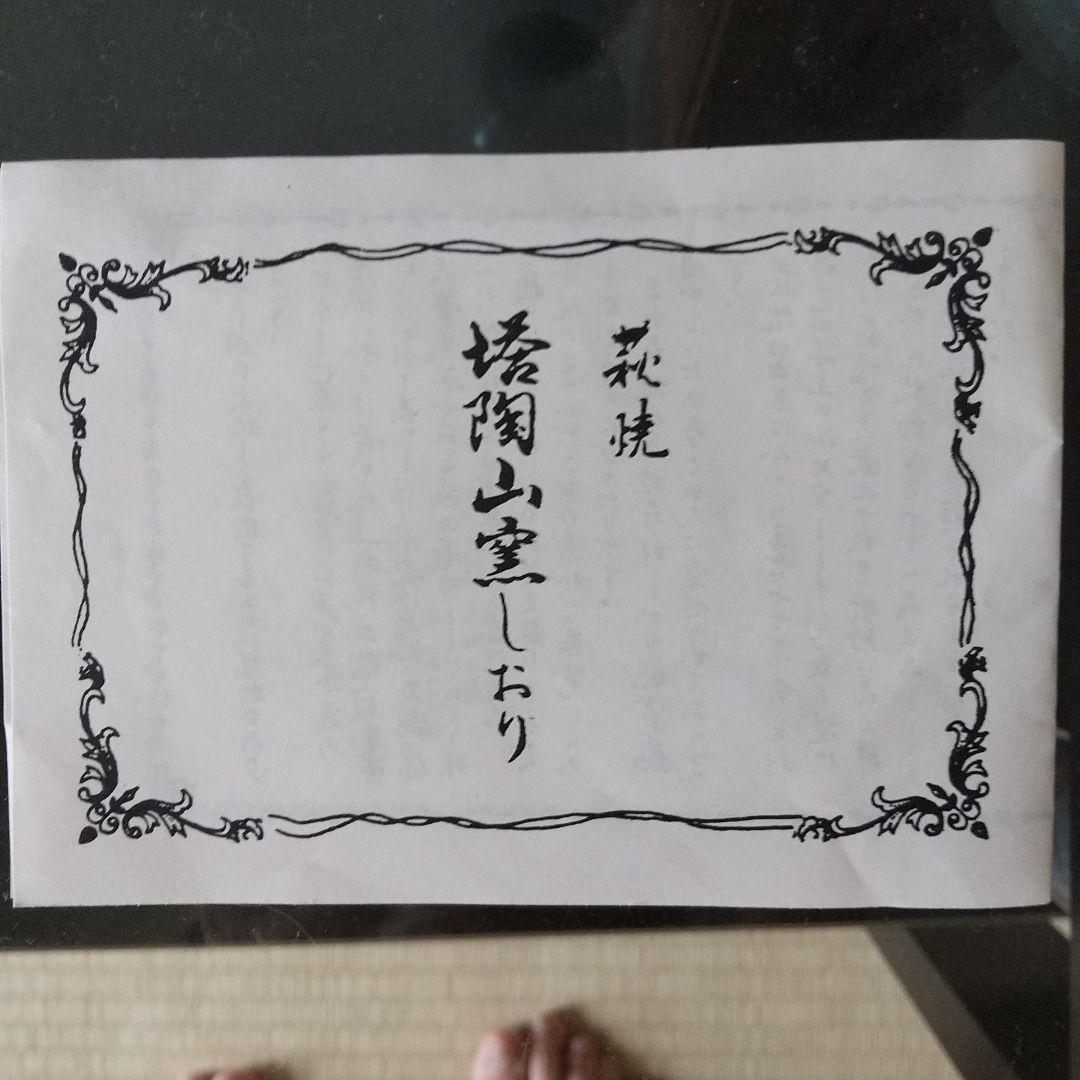 萩焼
塔陶山窯しおり